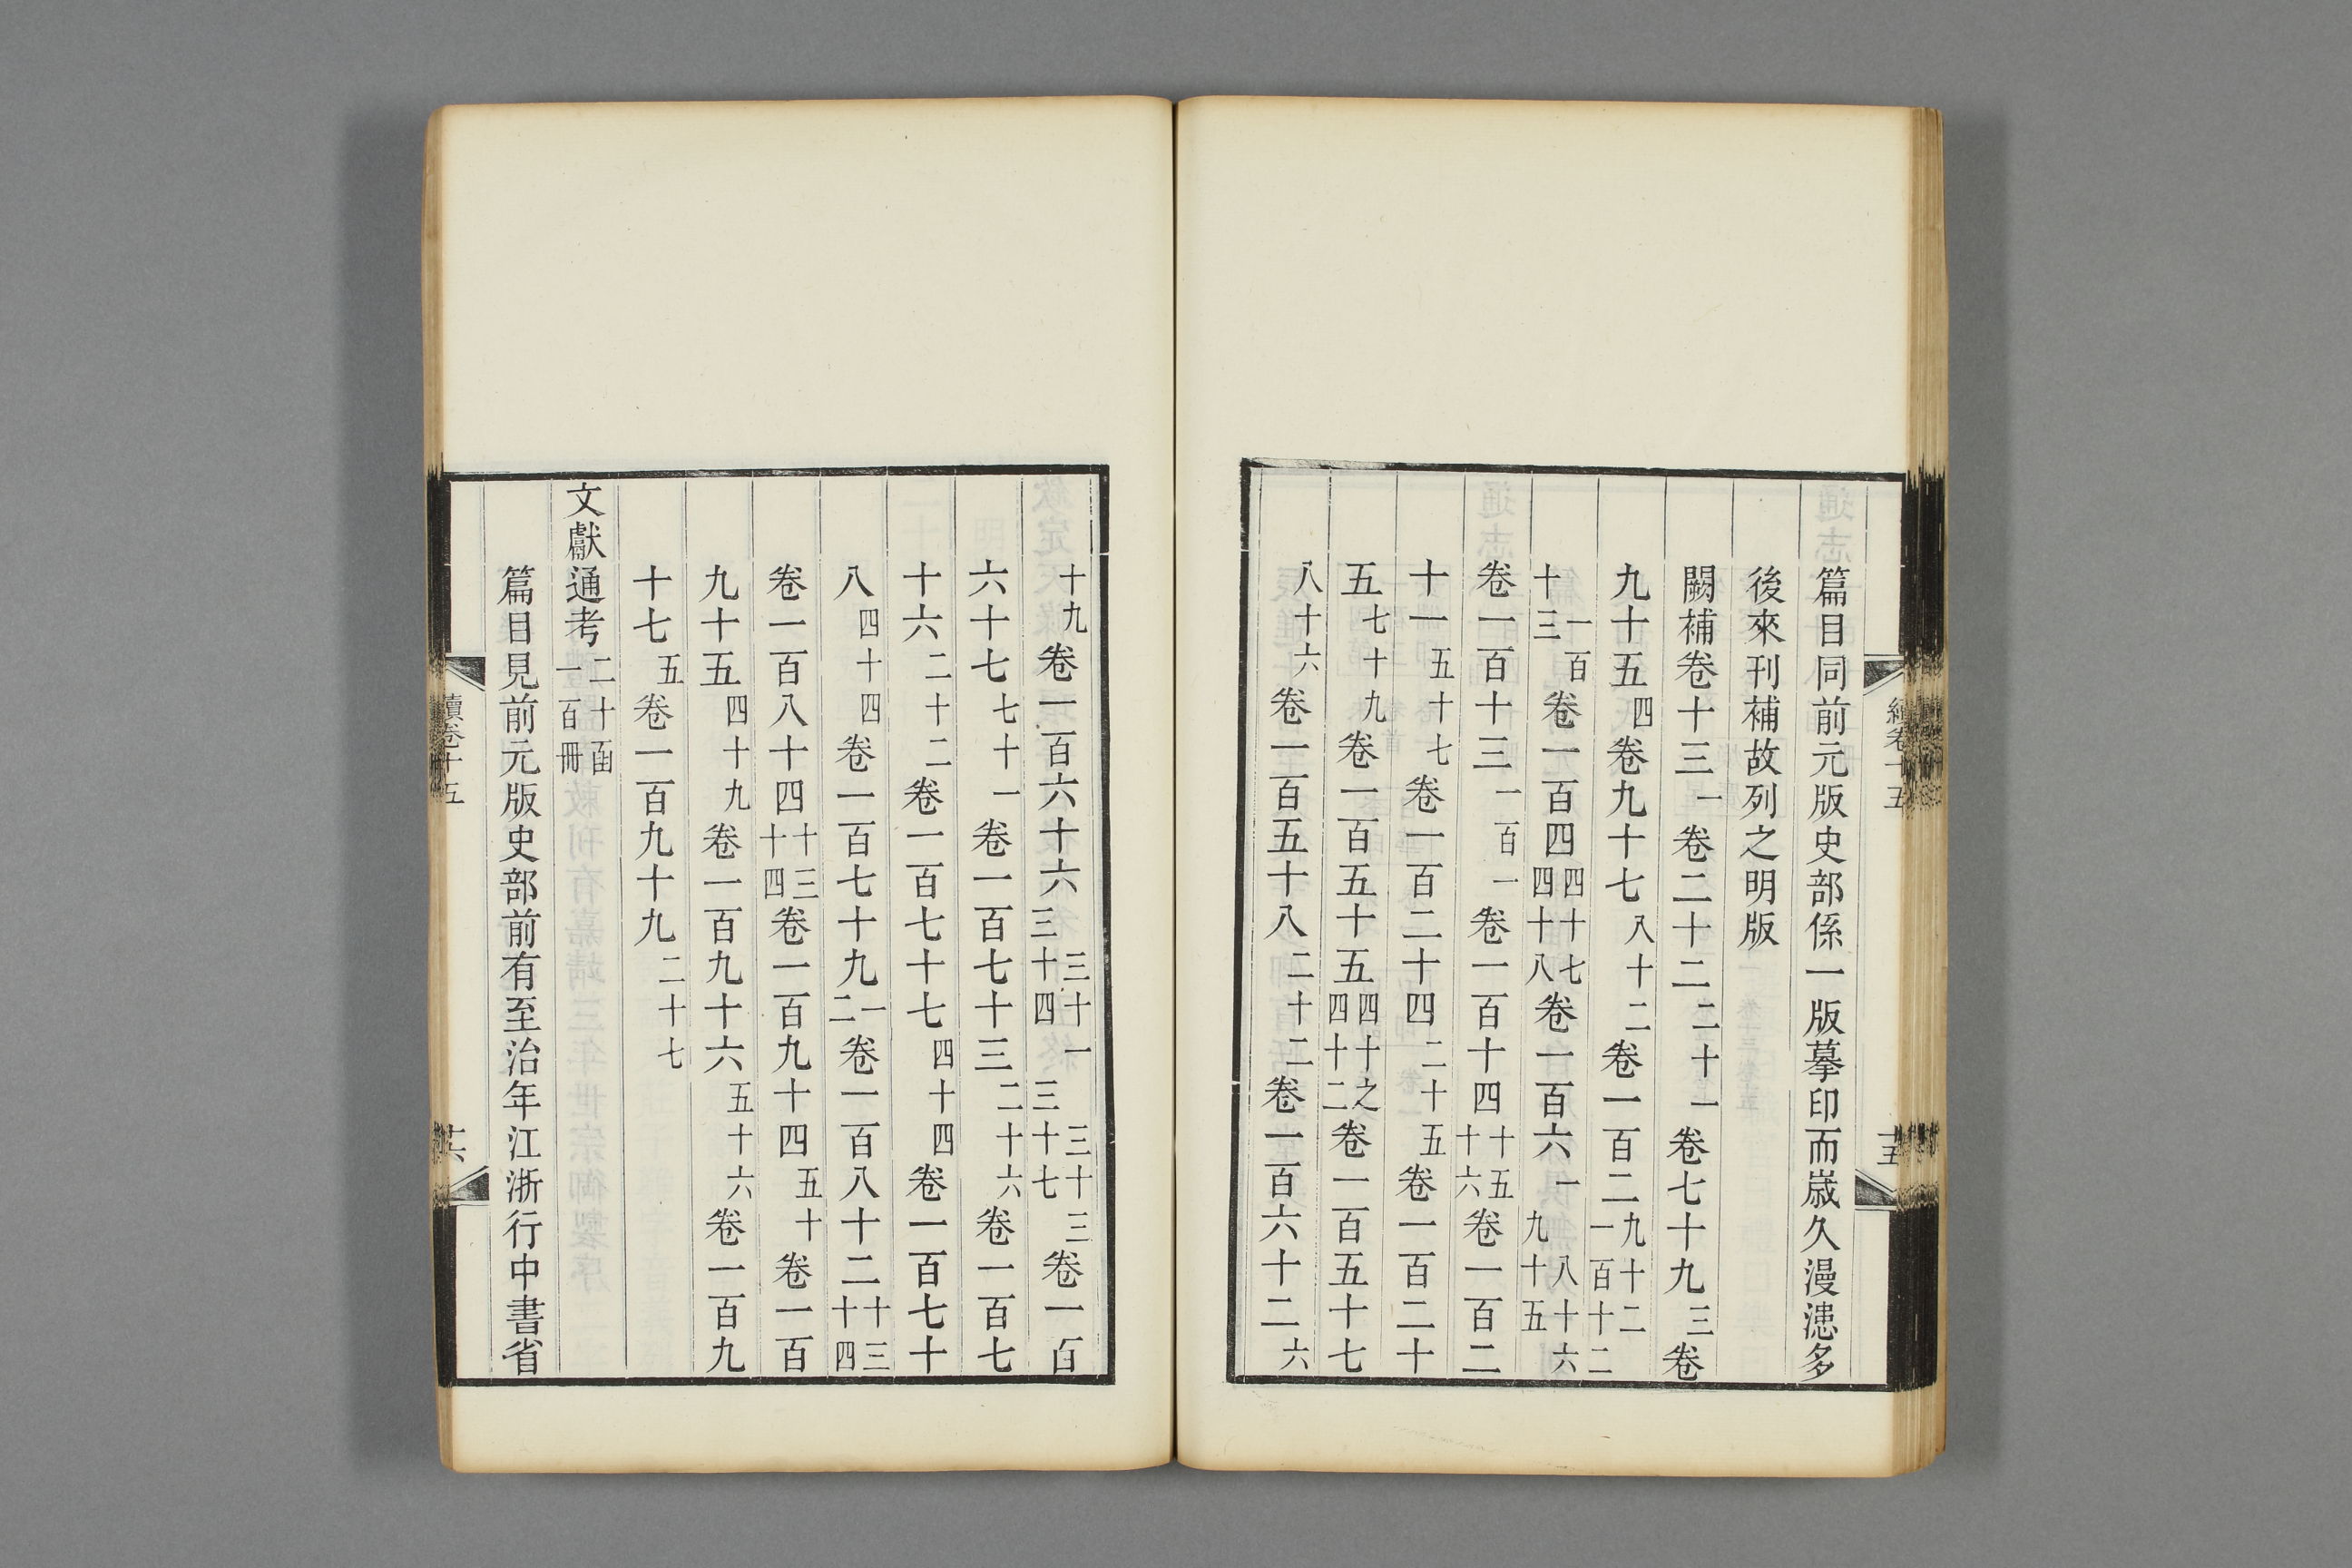 續卷十五 十五
篇目同前元版史部係一版摹印而嵗久漫漶多
後來刊補故列之明版
闕補卷十三一卷二十二二十一卷七十九三卷
九十五四卷九十七八十二卷一百二九十二一百十二
一百十三卷一百四四十七四十八卷一百六一八十六九十五
卷一百十三一百一卷一百十四十五十六卷一百二
十一五十七卷一百二十四二十五卷一百二十
五七十九卷一百五十五四十之四十二卷一百五十七
八十六卷一百五十八二十二卷一百六十二六
十九卷一百六十六三十一三十三三十四三十七卷一百
六十七七十一卷一百七十三二十六卷一百七
十六二十二卷一百七十七四十四卷一百七十
八四十四卷一百七十九一二卷一百八十二十三十四
卷一百八十四十三十四卷一百九十四五十卷一百
九十五四十九卷一百九十六五十六卷一百九
十七五卷一百九十九二十七
文獻通考二十函一百冊
篇目見前元版史部前有至治年江浙行中書省
續卷十五 十六